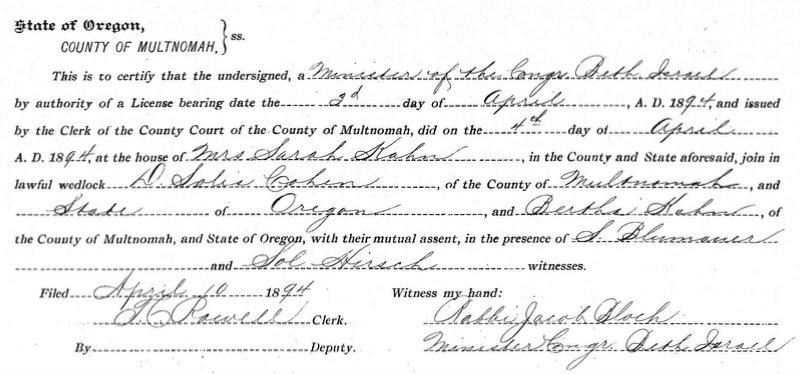 State of Oregon,
COUNTY OF MULTNOMAH, } ss.
This is to certify that the undersigned, a Minister of the Congr. Beth Israel
by authority of a License bearing date the 3d day of April, A. D. 1894, and issued
by the Clerk of the County Court of the County of Multnomah, did on the 4th day of April
A. D. 1894, at the house of Mrs Sarah Kahn, in the County and State aforesaid, join in
lawful wedlock D. Solis Cohen, of the County of Multnomah, and
State of Oregon, and Bertha Kahn, of
the County of Multnomah, and State of Oregon, with their mutual assent, in the presence of S. Blumauer
and Sol Hirsch witnesses.
Filed April 10 1894 Witness my hand:
Powell Clerk. Rabbi Jacob Bloch
By Deputy. Minister Congr. Beth Israel